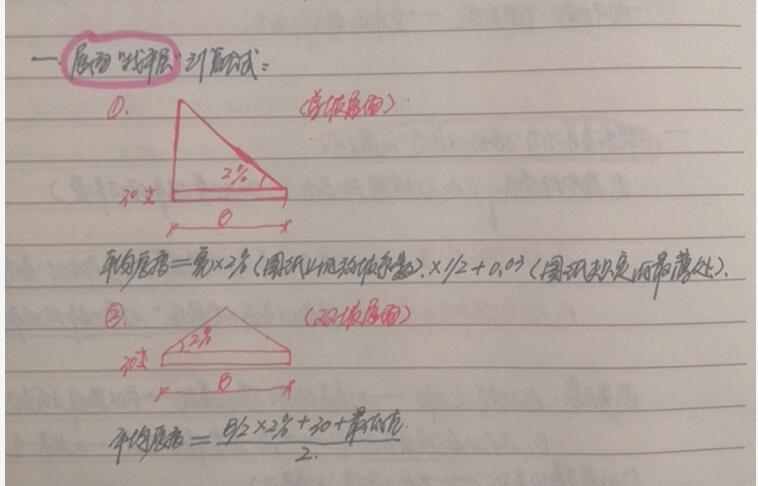 一、屋面"找平层"计算公式:
①. (单坡屋面)
2%
30 B
平均厚度=宽×2%(图纸上的找坡系数).×1/2+0.03(图纸规定的最薄处).
②. (双坡屋面)
2%
30 B
平均厚度= B/2×2%+30+最低点
2.